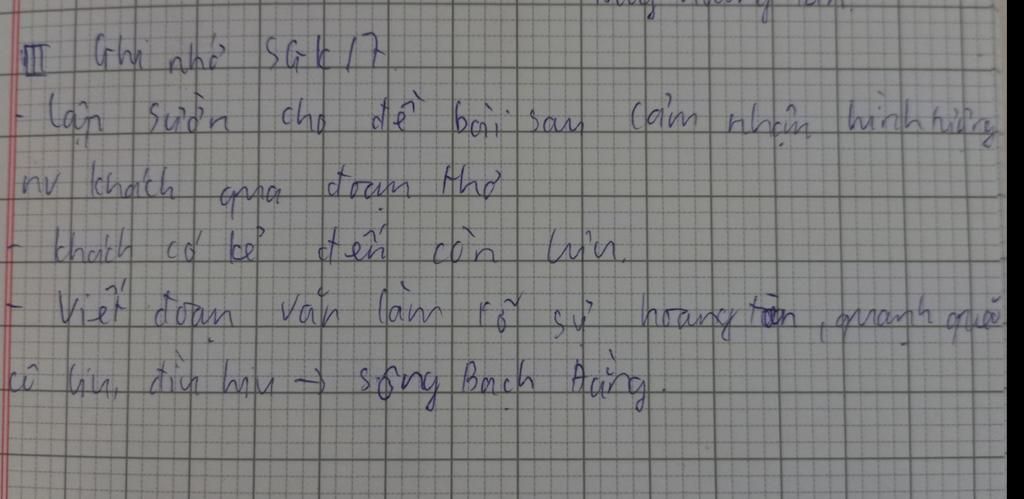 III Ghi nhớ SGK 17
- Lập sườn cho đề bài sau Cảm nhận hình tượng
nv khách qua đoạn thơ
- khách có kẻ đến còn lưu.
- Viết đoạn văn làm rõ sự hoang tàn, quạnh quẽ
, đìu hiu → sông Bạch Đằng.